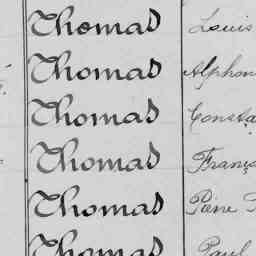 Thomas Louis
Thomas Alphon
Thomas Consta
Thomas Franç
Thomas Pierre
Thomas Paul